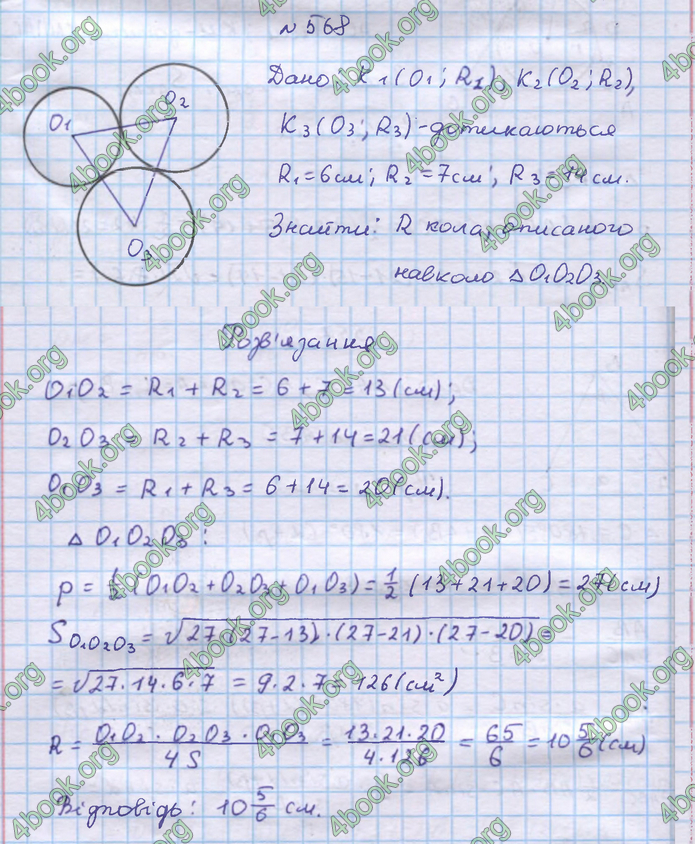 №568
Дано: K1(O1; R1), K2(O2; R2),
K3(O3; R3) - дотикаються
R1=6см; R2=7см; R3=14см.
Знайти: R кола, описаного
навколо △O1O2O3.
O1
O2
O3
Розв'язання
O1O2 = R1 + R2 = 6 + 7 = 13 (см);
O2O3 = R2 + R3 = 7 + 14 = 21 (см);
O1O3 = R1 + R3 = 6 + 14 = 20 (см).
△O1O2O3:
p = 1/2 (O1O2 + O2O3 + O1O3) = 1/2 (13+21+20) = 27 (см)
S O1O2O3 = √27·(27-13)·(27-21)·(27-20) =
= √27·14·6·7 = 9·2·7 = 126 (см²)
R = O1O2 · O2O3 · O1O3 / 4S = 13·21·20 / 4·126 = 65/6 = 10 5/6 (см)
Відповідь: 10 5/6 см.
4book.org